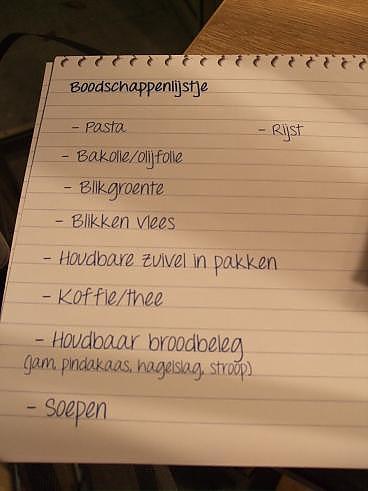 Boodschappenlijstje
- Pasta - Rijst
- Bakolie/olijfolie
- Blikgroente
- Blikken vlees
- Houdbare zuivel in pakken
- Koffie/thee
- Houdbaar broodbeleg
(jam, pindakaas, hagelslag, stroop)
- Soepen